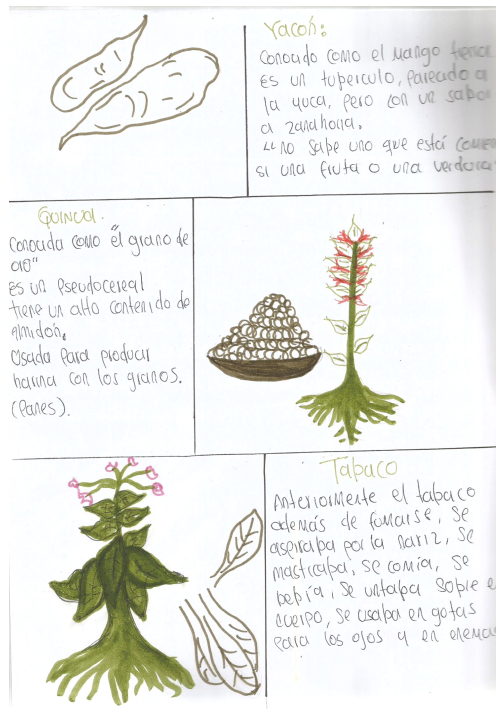 Yacón:
Conocido como el mango tierra
es un tuperculo, pareado a
la yuca, pero con un sabor
a zanahoria.
"no sabe uno que está comien
si una fruta o una verdura"
Quinua.
Conocida como "el grano de
oro"
es un Pseudocereal
tiene un alto contenido de
almidón.
Usada para producir
harina con los granos.
(Panes).
Tabaco
Anteriormente el tabaco
además de fumarse, se
aspiraba por la nariz, se
masticaba, se comía, se
bebía, se untaba sobre e
cuerpo, se usaba en gotas
para los ojos y en enemas